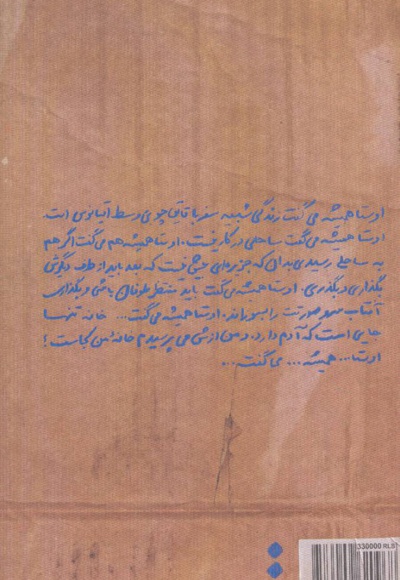 اوستا همیشه می گفت زندگی شبیه سفر با قایق چوبی وسط اقیانوس است.
اوستا همیشه می گفت ساحلی در کار نیست. اوستا همیشه هم می گفت اگر هم
به ساحلی رسیدی بدان که جزیره‌ای بیش نیست که بعد باید از طرف دیگرش
بگذاری و بگذری. اوستا همیشه می گفت باید منتظر طوفان باشی و بگذاری
آفتاب صورتت را بسوزاند. اوستا همیشه می گفت... خانه تنها
جایی است که آدم دارد. و من ازش می پرسیدم خانه من کجاست؟
اوستا... همیشه... می گفت...
330000 RLS